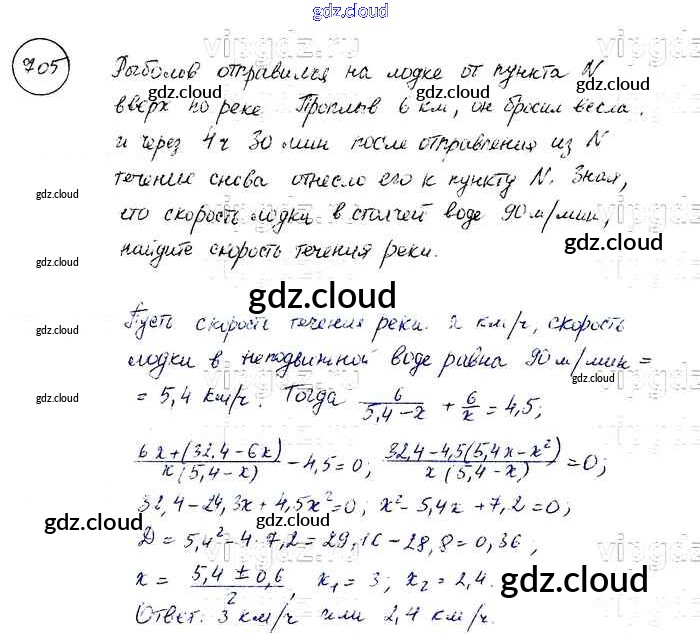 gdz.cloud
705
Рыболов отправился на лодке от пункта N
gdz.cloud gdz.cloud
вверх по реке. Проплыв 6 км, он бросил весла,
и через 4ч 30 мин после отправления из N
течение снова отнесло его к пункту N. Зная,
gdz.cloud
что скорость лодки в стоячей воде 90 м/мин,
gdz.cloud
найдите скорость течения реки.
gdz.cloud
gdz.cloud
Пусть скорость течения реки x км/ч, скорость
gdz.cloud
лодки в неподвижной воде равна 90 м/мин =
gdz.cloud
= 5,4 км/ч. Тогда 6/(5,4-x) + 6/x = 4,5;
gdz.cloud
(6x+(32,4-6x))/(x(5,4-x)) - 4,5=0; (32,4-4,5(5,4x-x²))/(x(5,4-x)) =0;
32,4-24,3x+4,5x²=0; x²-5,4x+7,2=0;
gdz.cloud gdz.cloud
D = 5,4²-4·7,2=29,16-28,8=0,36;
x = (5,4±0,6)/2 x₁=3; x₂=2,4.
gdz.cloud gdz.cloud
Ответ: 3 км/ч или 2,4 км/ч.